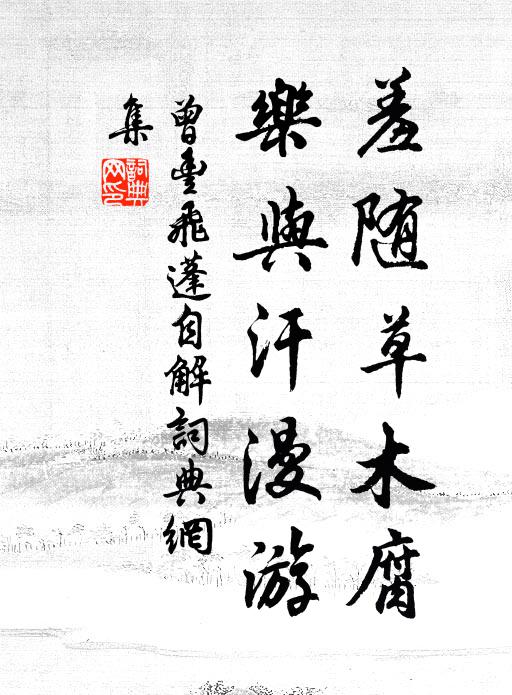 羞随草木腐
樂與汗漫游
曾豐飛蓬自解詞典網
集
詞典
网印